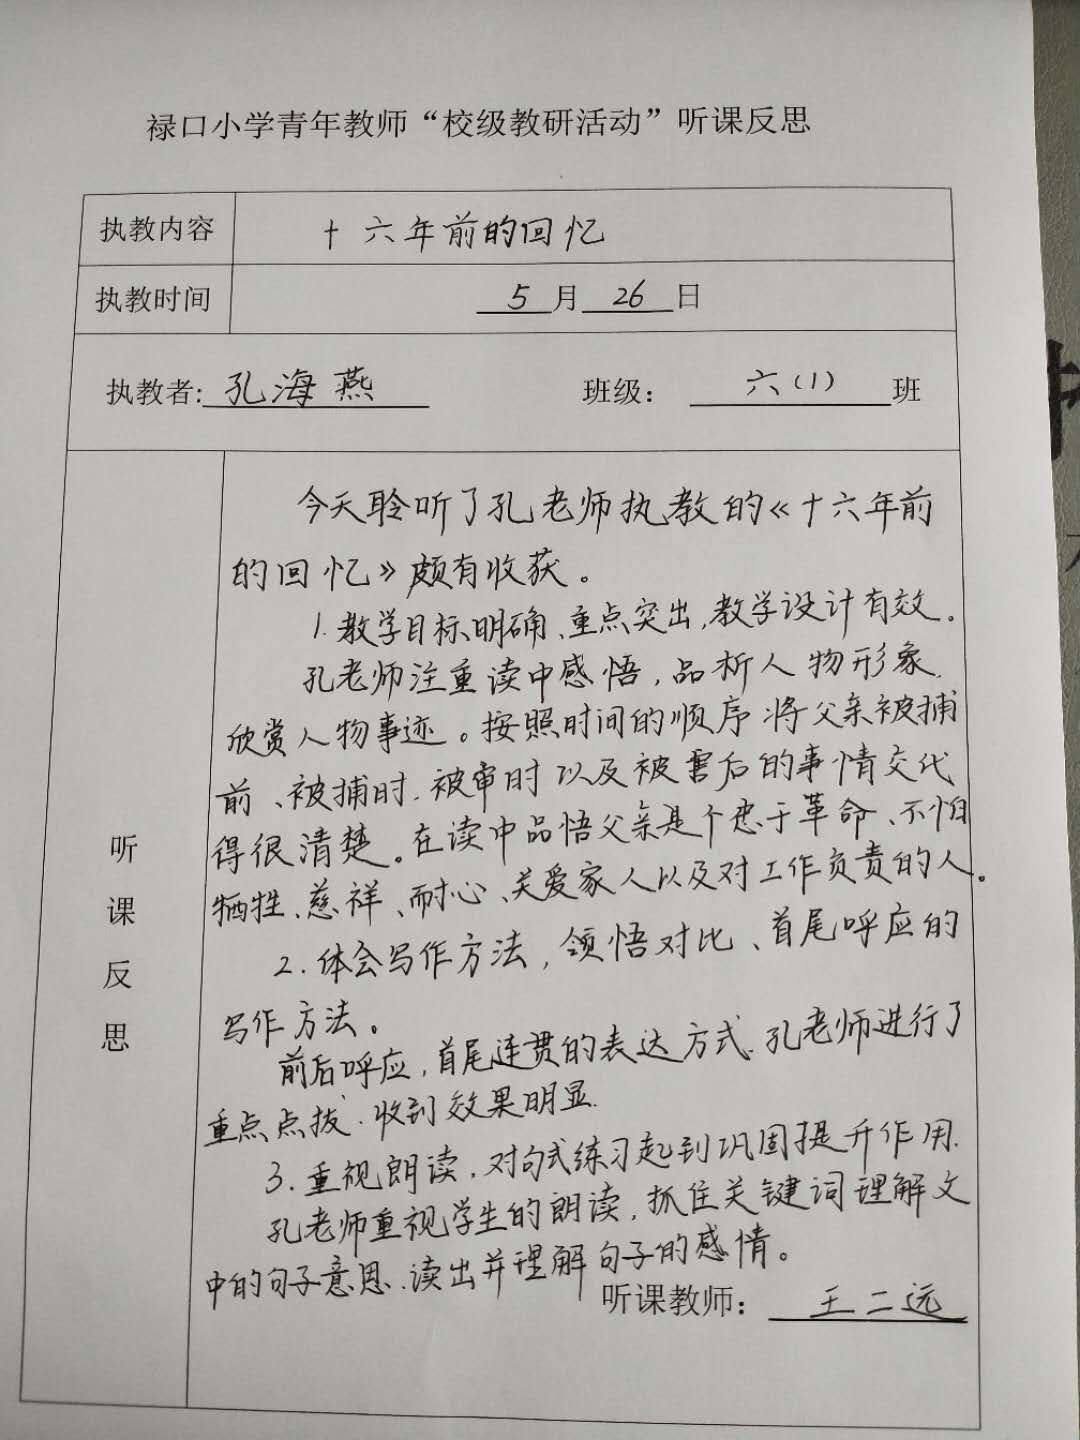 禄口小学青年教师“校级教研活动”听课反思
执教内容 十六年前的回忆
执教时间 5月26日
执教者:孔海燕 班级：六(1)班
听课反思
今天聆听了孔老师执教的《十六年前
的回忆》颇有收获。
1.教学目标明确、重点突出,教学设计有效。
孔老师注重读中感悟,品析人物形象、
欣赏人物事迹。按照时间的顺序将父亲被捕
前、被捕时、被审时以及被害后的事情交代
得很清楚。在读中品悟父亲是个忠于革命、不怕
牺牲、慈祥、耐心、关爱家人以及对工作负责的人。
2.体会写作方法,领悟对比、首尾呼应的
写作方法。
前后呼应,首尾连贯的表达方式.孔老师进行了
重点点拨.收到效果明显.
3.重视朗读,对句式练习起到巩固提升作用.
孔老师重视学生的朗读,抓住关键词理解文
中的句子意思、读出并理解句子的感情。
听课教师：王二远